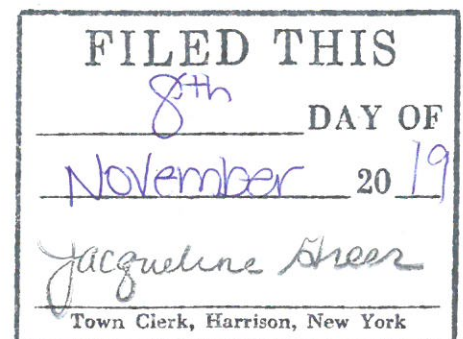 FILED THIS
8th DAY OF
November 20 19
Jacqueline Greer
Town Clerk, Harrison, New York